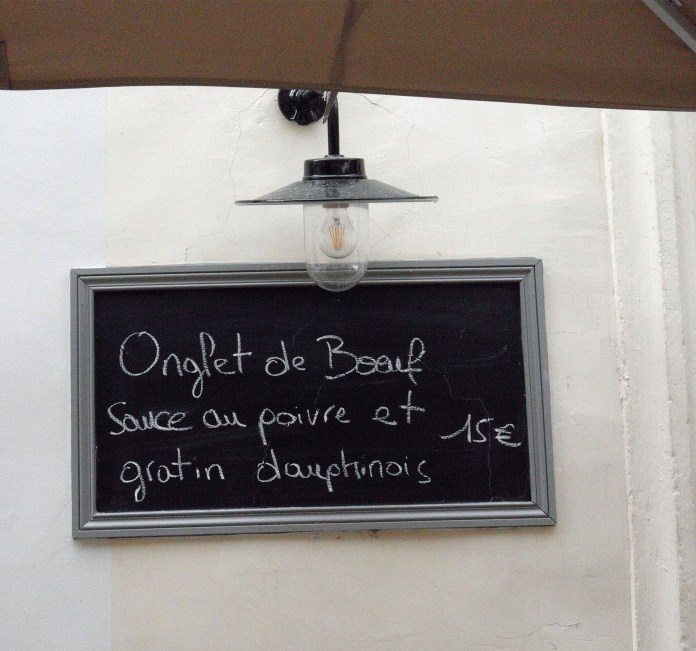 Onglet de Boeuf
Sauce au poivre et
gratin dauphinois
15€